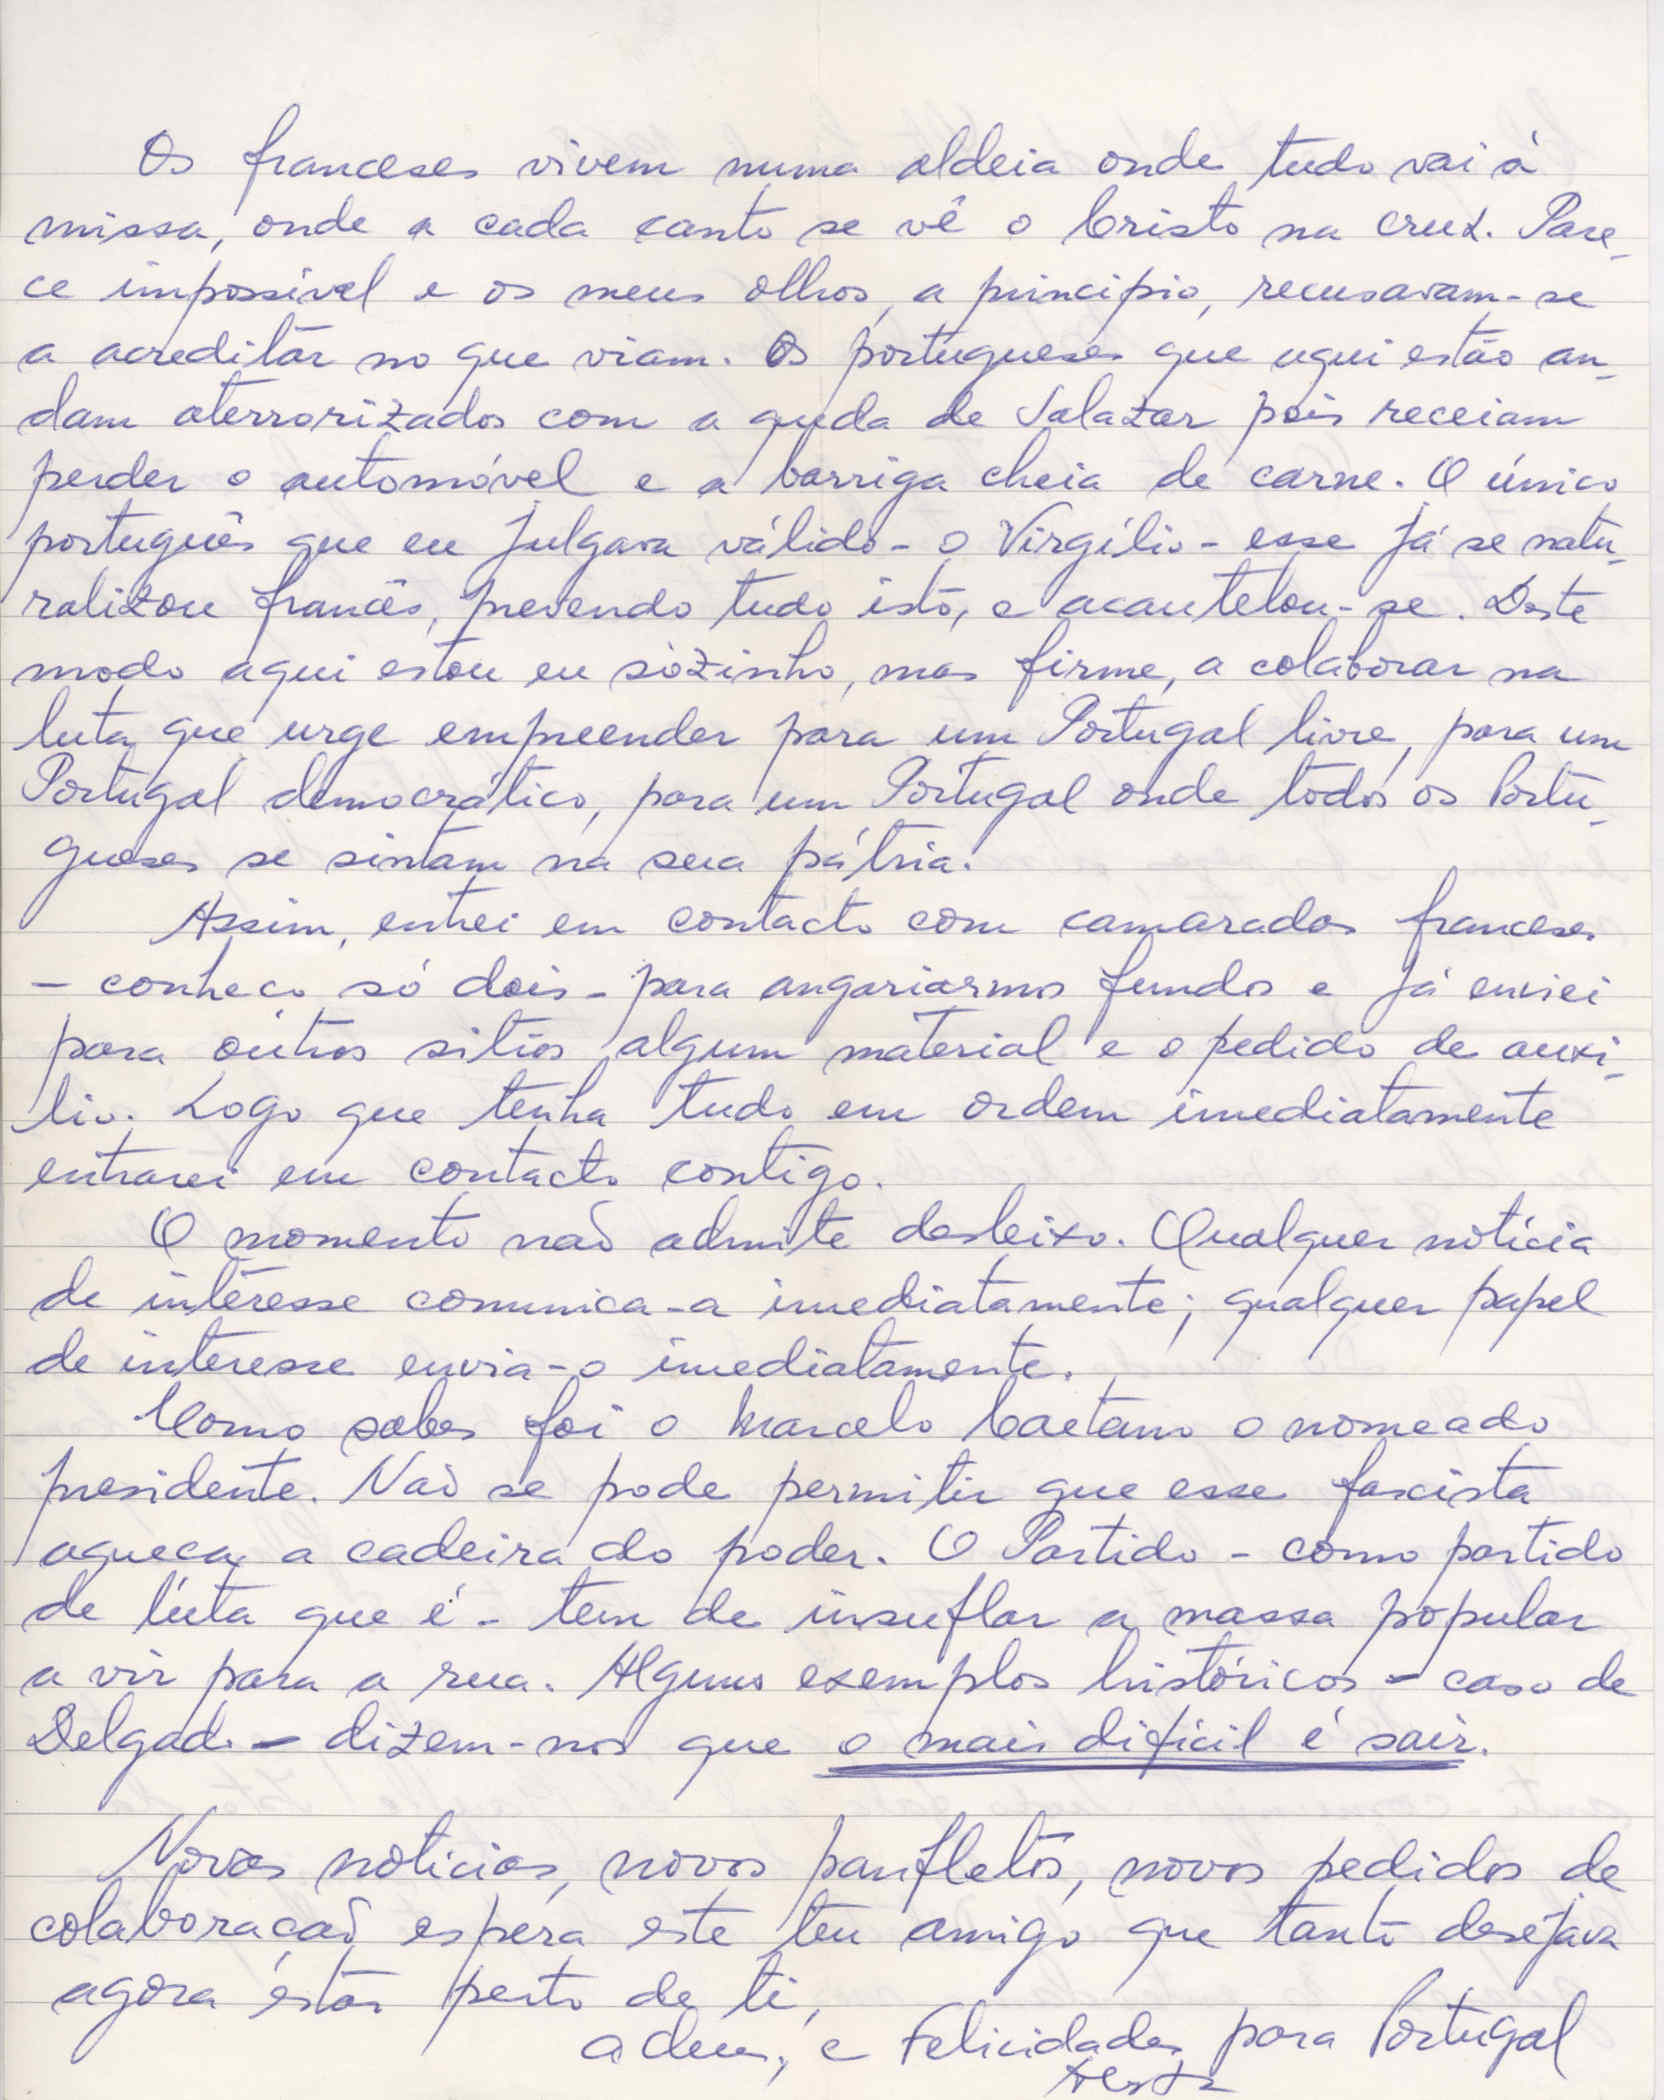 Os franceses vivem numa aldeia onde tudo vai à
missa, onde a cada canto se vê o Cristo na cruz. Pare-
ce impossível e os meus olhos, a princípio, recusavam-se
a acreditar no que viam. Os portugueses que aqui estão an-
dam aterrorizados com a queda de Salazar pois receiam
perder o automóvel e a barriga cheia de carne. O único
português que eu julgava válido - o Virgílio - esse já se natu-
ralizou francês, prevendo tudo isto, e acautelou-se. Deste
modo aqui estou eu sòzinho, mas firme, a colaborar na
luta que urge empreender para um Portugal livre, para um
Portugal democrático, para um Portugal onde todos os Portu-
gueses se sintam na sua pátria.
Assim, entrei em contacto com camaradas franceses
- conheço só dois - para angariarmos fundos e já enviei
para outros sitios algum material e o pedido de auxi-
lio. Logo que tenha tudo em ordem imediatamente
entrarei em contacto contigo.
O momento não admite desleixo. Qualquer notícia
de interesse comunica-a imediatamente; qualquer papel
de interesse envia-o imediatamente.
Como sabes foi o Marcelo Caetano o nomeado
presidente. Não se pode permitir que esse fascista
aqueça a cadeira do poder. O Partido - como partido
de luta que é - tem de insuflar a massa popular
a vir para a rua. Alguns exemplos históricos - caso de
Delgado - dizem-nos que o mais difícil é sair.
Novas noticias, novos panfletos, novos pedidos de
colaboração espera este teu amigo que tanto desejava
agora estar perto de ti,
adeus, e Felicidades para Portugal